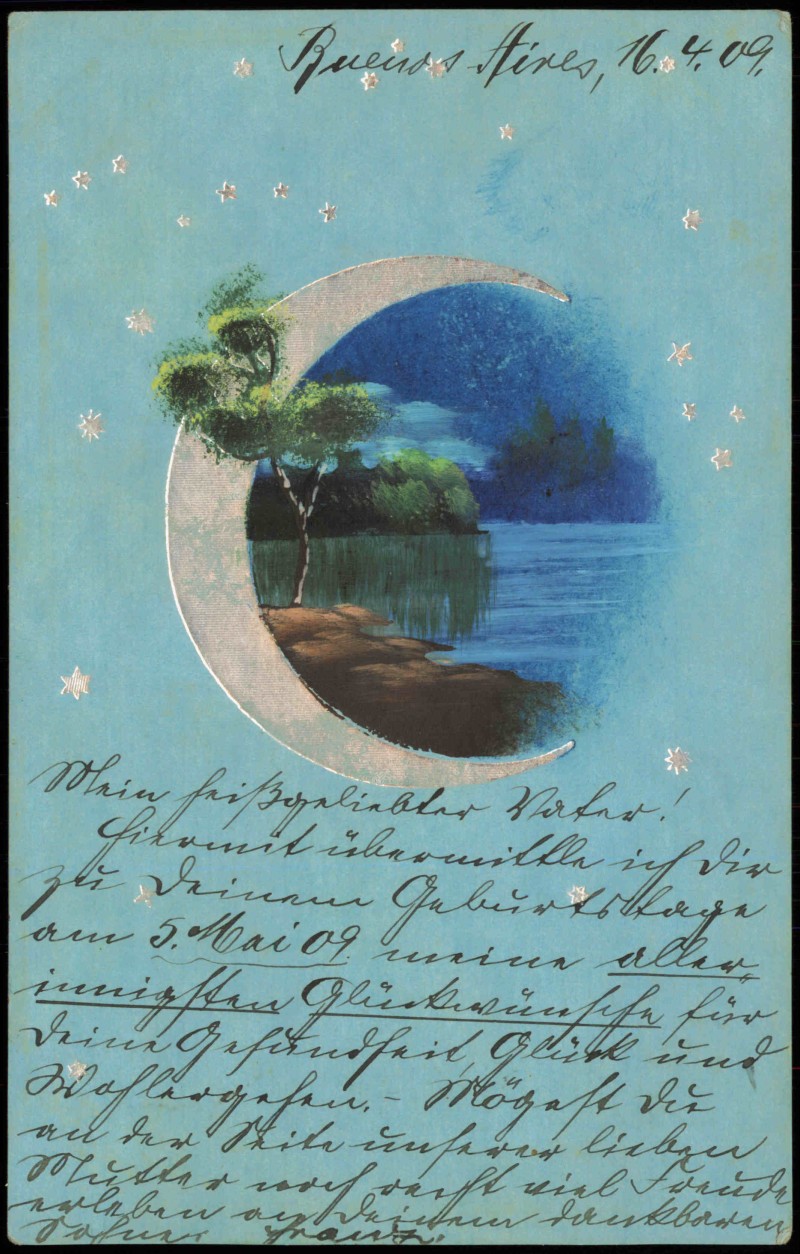 Buenos Aires, 16. 4. 09.
Mein heißgeliebter Vater!
Hiermit übermittle ich Dir
zu Deinem Geburtstage
am 5. Mai 09 meine aller-
innigsten Glückwünsche für
Deine Gesundheit, Glück und
Wohlergehen. – Mögest Du
an der Seite unserer lieben
Mutter noch recht viel Freude
erleben an Deinem dankbaren
Sohne Franz.